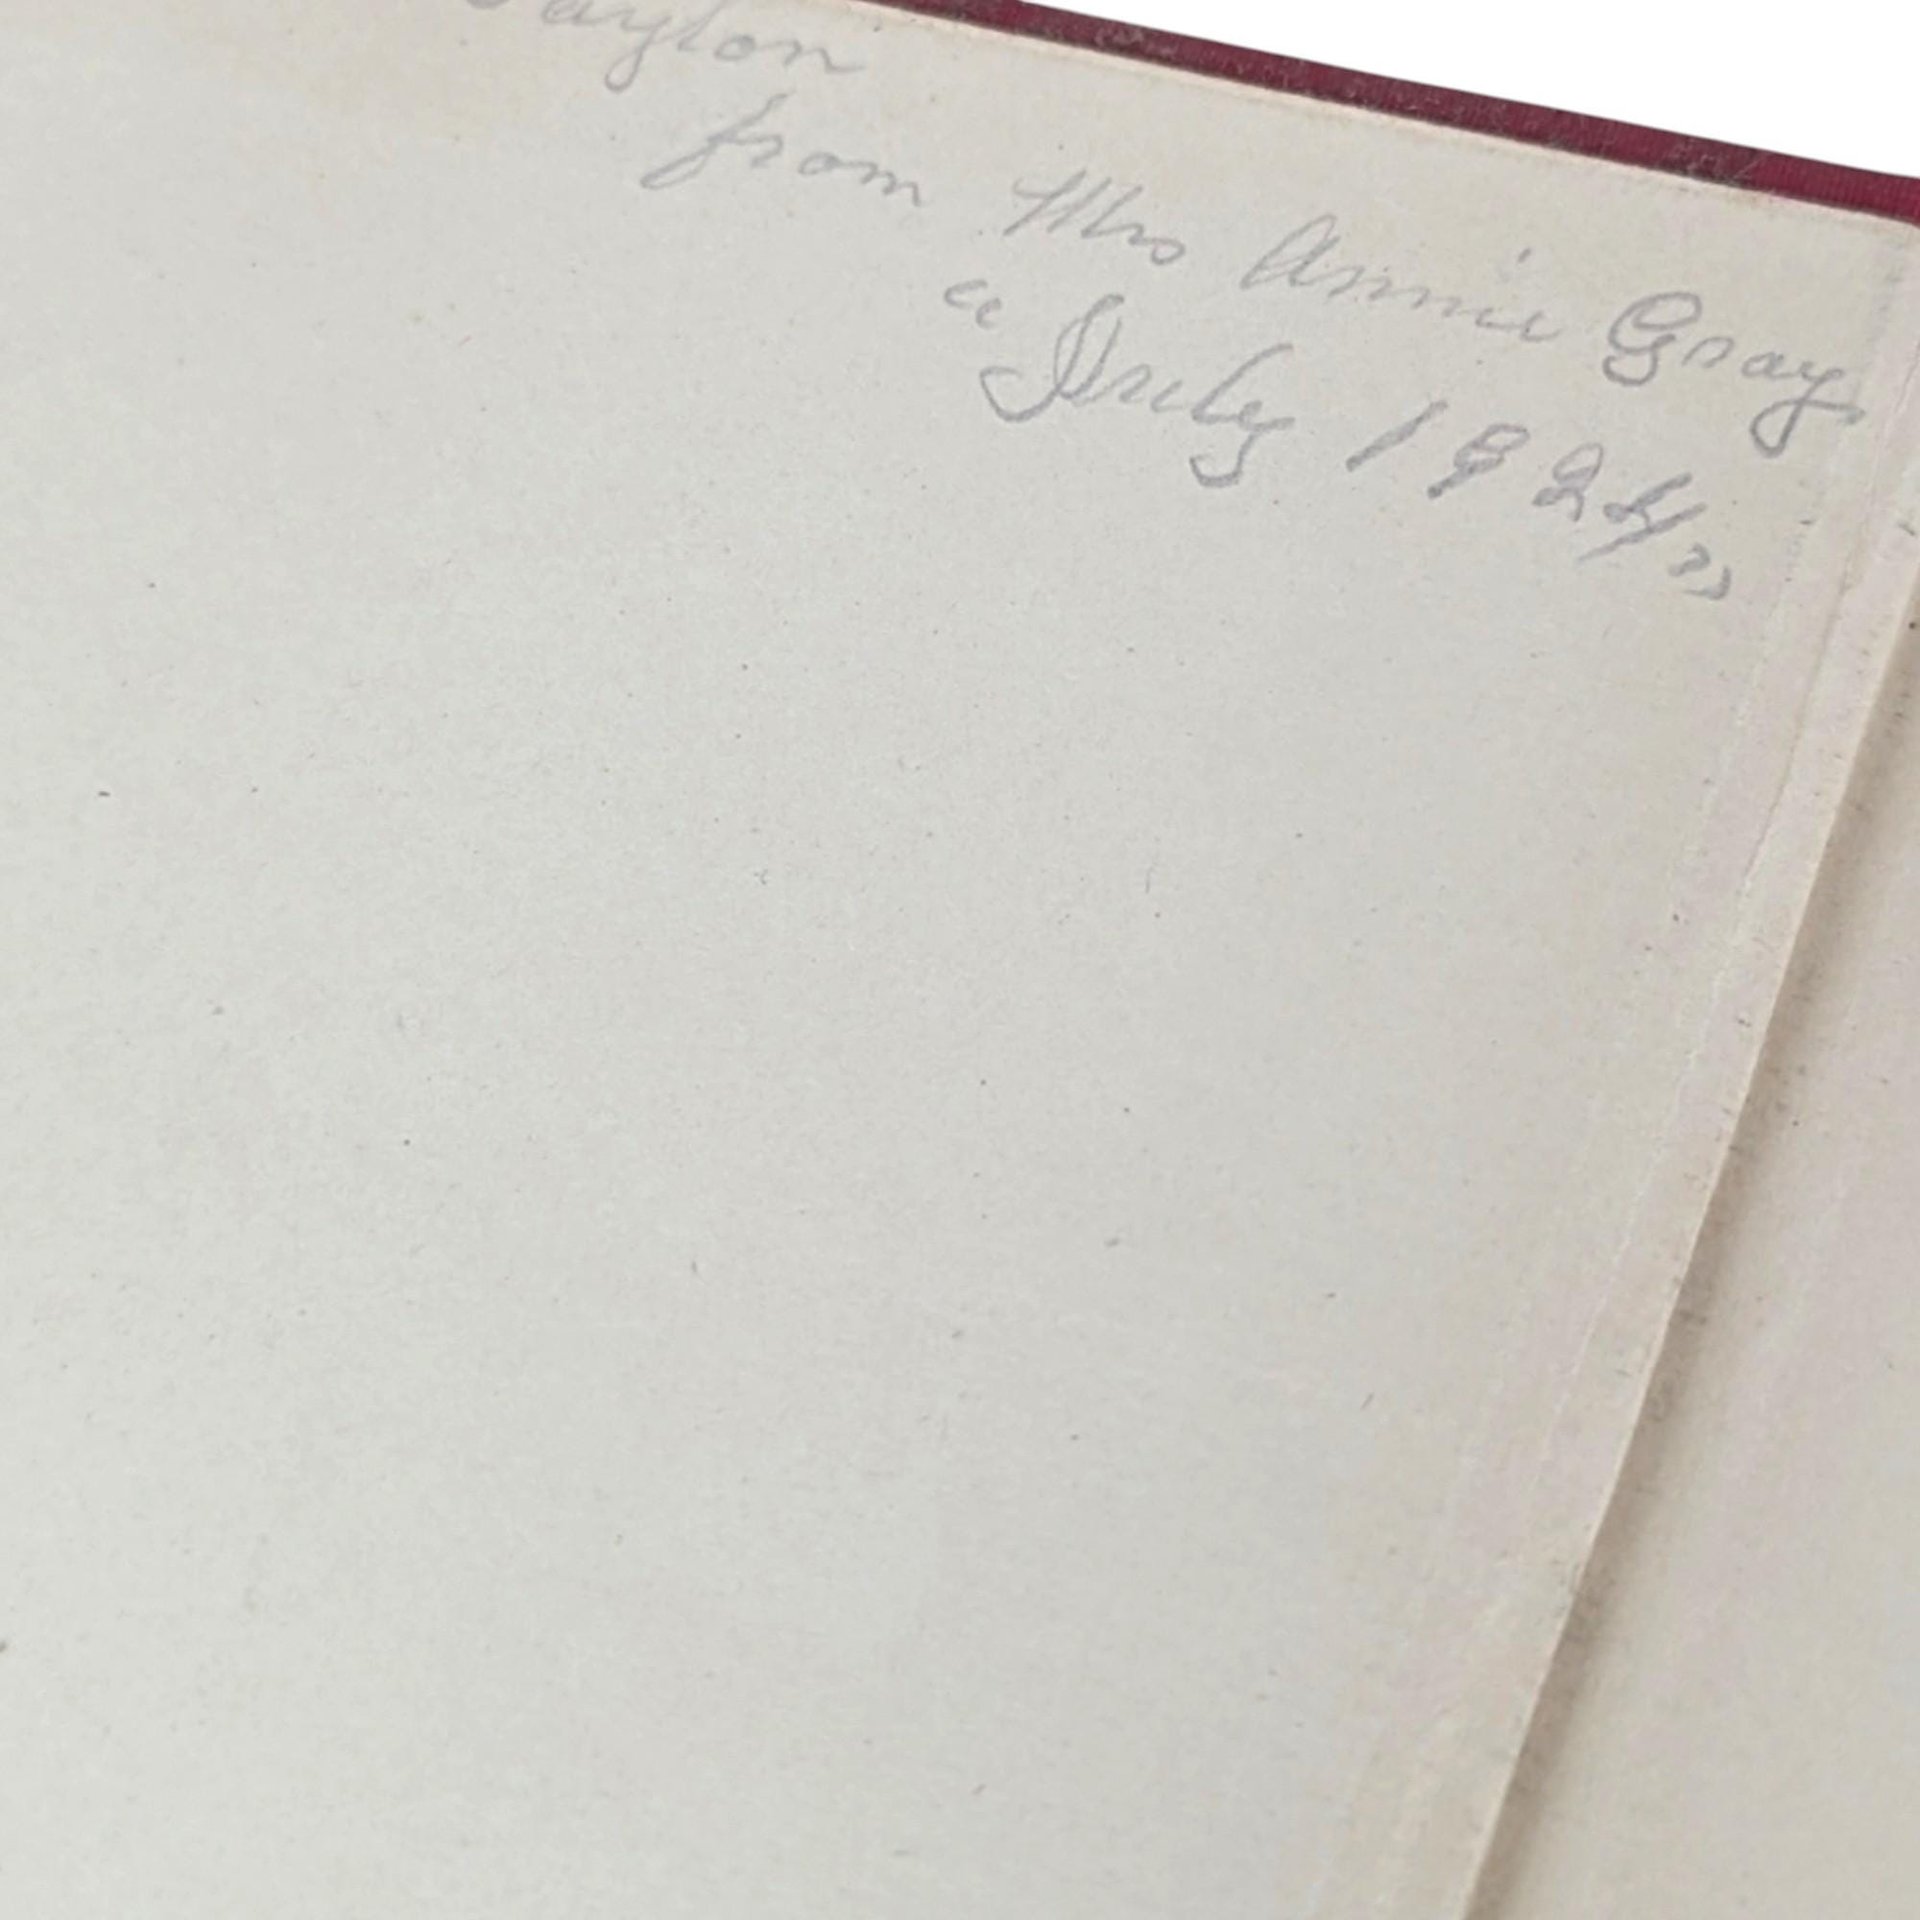 Taylor
from Mrs Annie Gray,
" July 1924 "